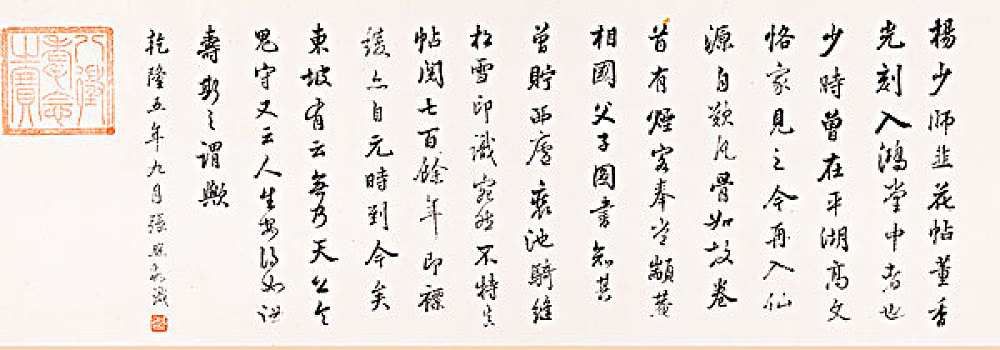 楊少師韭花帖董香
光刻入鴻堂中者也
少時曾在平湖高文
恪家見之今再入仙
源自歎凡骨如故卷
首有煙客奉常顓菴
相國父子圖書知其
曾貯西廬裏池騎縫
松雪印識宛然不特真
帖閱七百餘年即褾
綾亦自元時到今矣
東坡有云無乃天公令
鬼守又云人生安得如汝
壽斯之謂歟
乾隆五年九月張照敬識
八徵耄念之寶